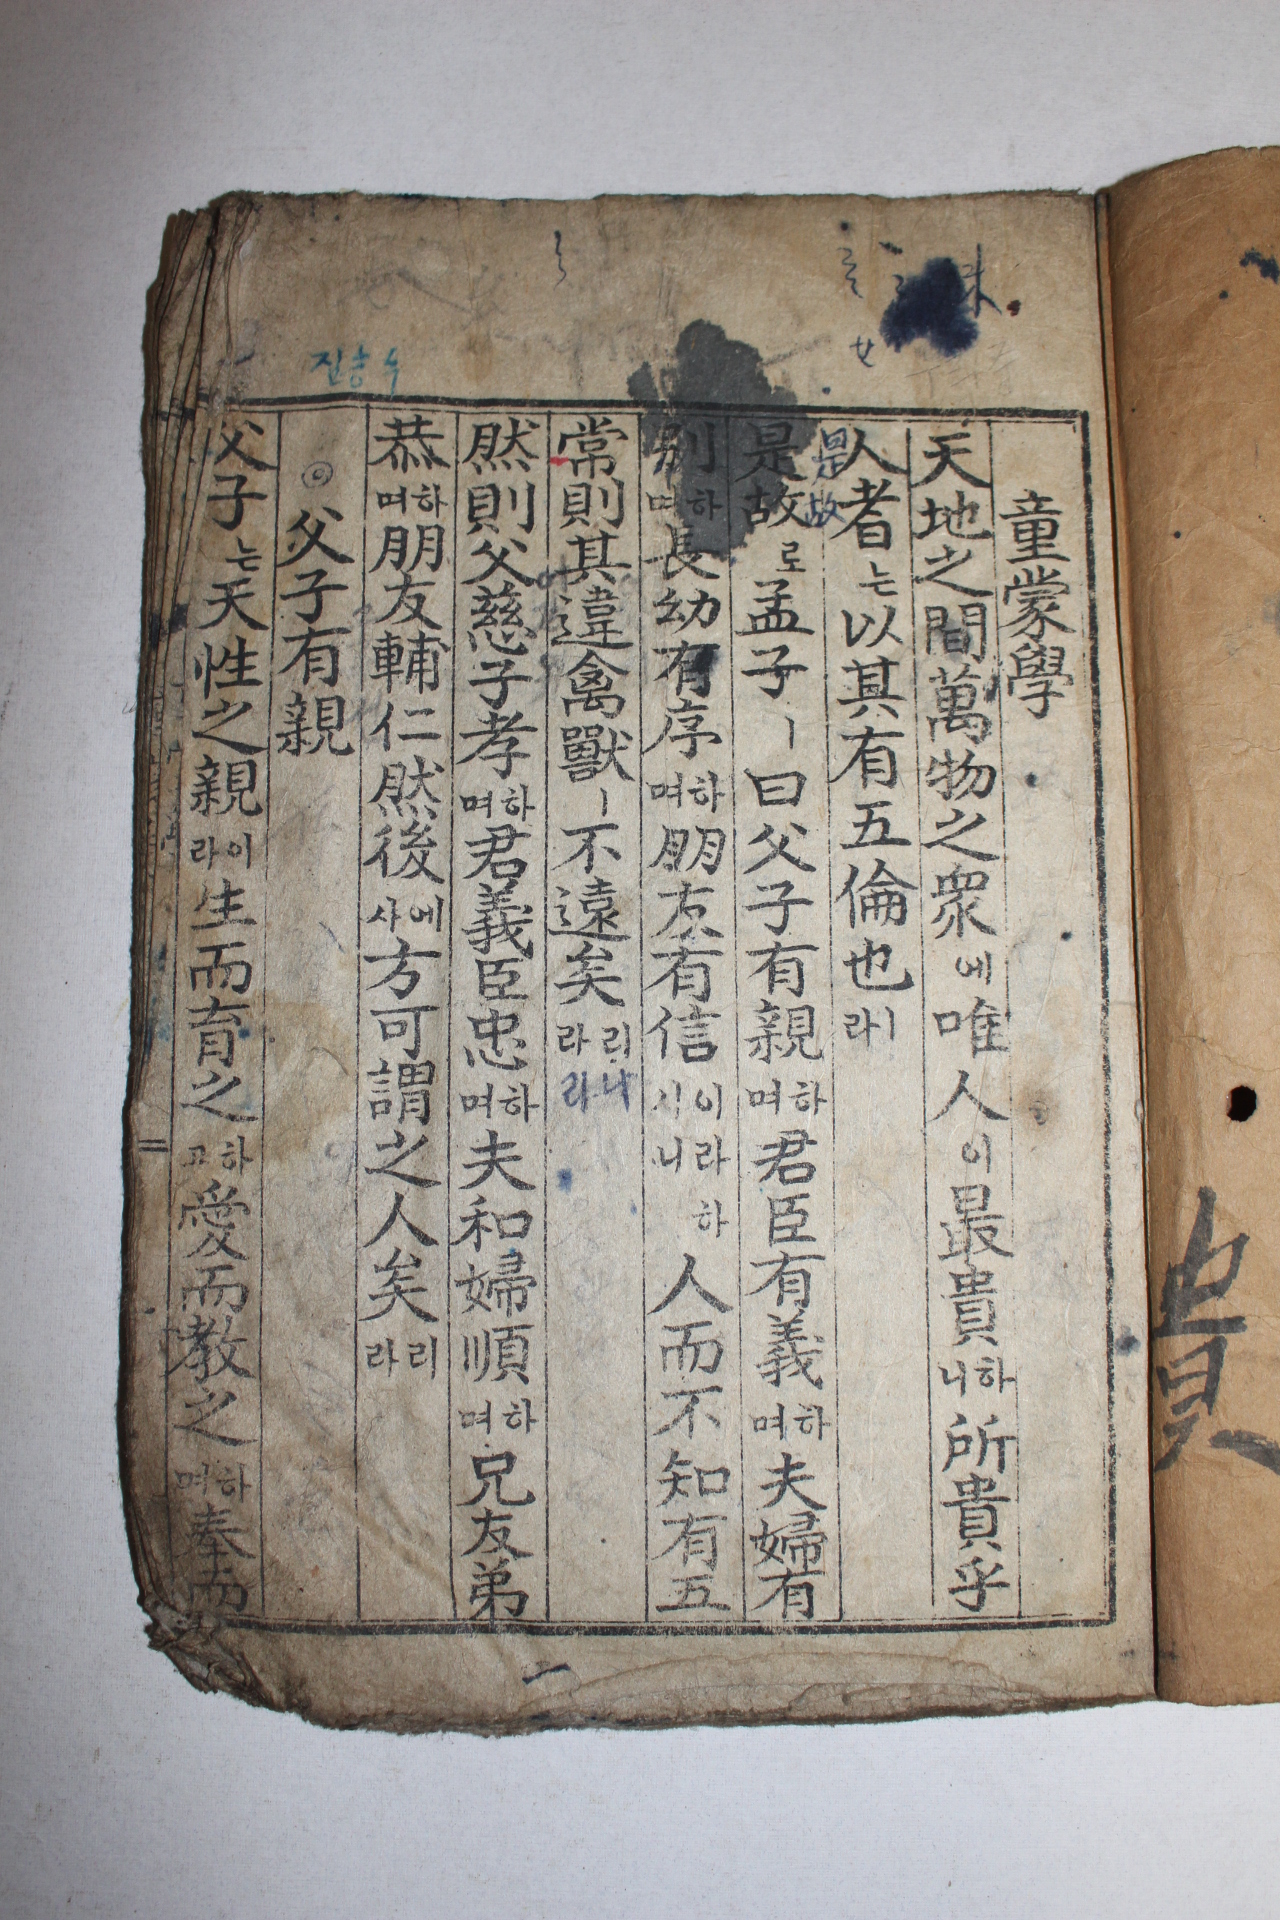 童蒙學
天地之間萬物之衆에唯人이最貴하니所貴乎
人者는以其有五倫也ㅣ라
是故
是故로孟子ㅣ曰父子有親하며君臣有義하며夫婦有
別하며長幼有序하며朋友有信이라하시니人而不知有五
常則其違禽獸ㅣ不遠矣리라
니라
然則父慈子孝하며君義臣忠하며夫和婦順하며兄友弟
恭하며朋友輔仁然後에사方可謂之人矣리라
父子有親
父子는天性之親이라生而育之하고愛而教之하며奉而